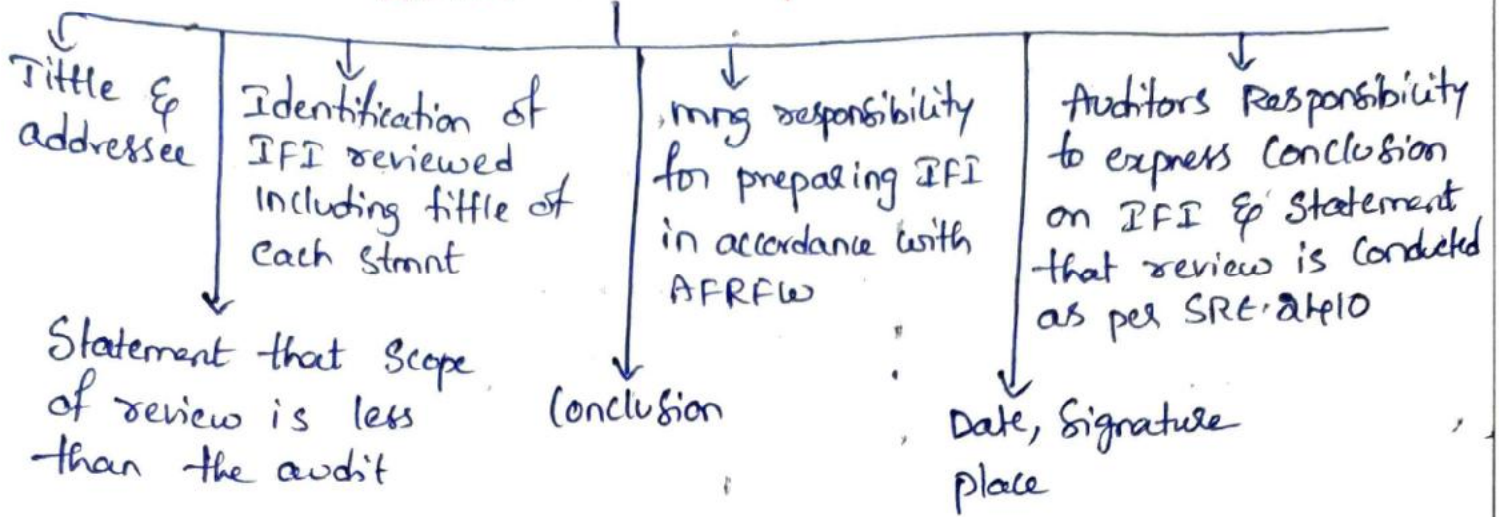 Tittle &
addressee
Identification of
IFI reviewed
Including tittle of
each stmnt
mng responsibility
for preparing IFI
in accordance with
AFRFW
Auditors Responsibility
to express Conclusion
on IFI & Statement
that review is Conducted
as per SRE. 2410
Statement that Scope
of review is less
than the audit
Conclusion
Date, Signature
place